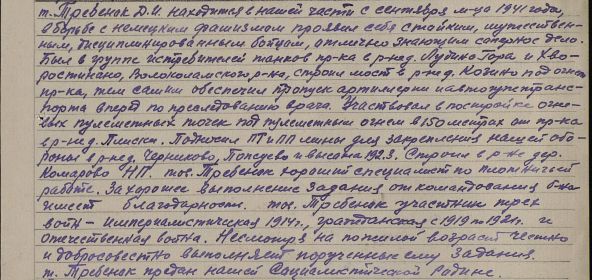 т. Требенок Д.И. находится в нашей части с сентября м-ца 1941 года,
в борьбе с немецким фашизмом проявил себя стойким, мужествен-
ным, дисциплинированным бойцом, отлично знающим саперное дело.
Был в группе истребителей танков пр-ка в р-не д. Лудина Гора и Хво-
ростинино, Волоколамского р-на, строил мост в р-не д. Козино под огнем
пр-ка, тем самым обеспечил пропуск артиллерии и автогужтранс-
порта вперед по преследованию врага. Участвовал в постройке огне-
вых пулеметных точек под пулеметным огнем в 150 метрах от пр-ка
в р-не д. Плиски. Подносил ПТ и ПП мины для закрепления нашей обо-
роны в р-не д. Черниково, Попцово и высота 192.3. Строил в р-не дер.
Комарово НП. тов. Требенок хороший специалист по плотничьей
работе. За хорошее выполнение задания, от командования б-на
имеет благодарность. тов. Требенок участник трех
войн – империалистическая 1914 г., гражданская с 1919 по 1921 г. и
отечественная война. Несмотря на пожилой возраст честно
и добросовестно выполняет порученные ему задания.
т. Требенок предан нашей Социалистической Родине.